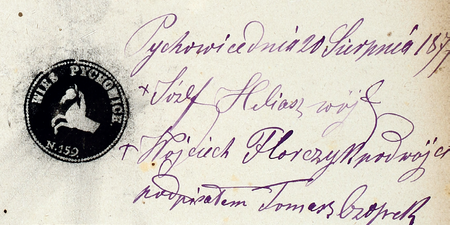 WIEŚ PYCHOWICE
N.159
Pychowice dnia 20 Sierpnia 187
+ Józef Heliasz wójt
+ Wojciech Florczyk podwójci
podpisałem Tomasz Czopek